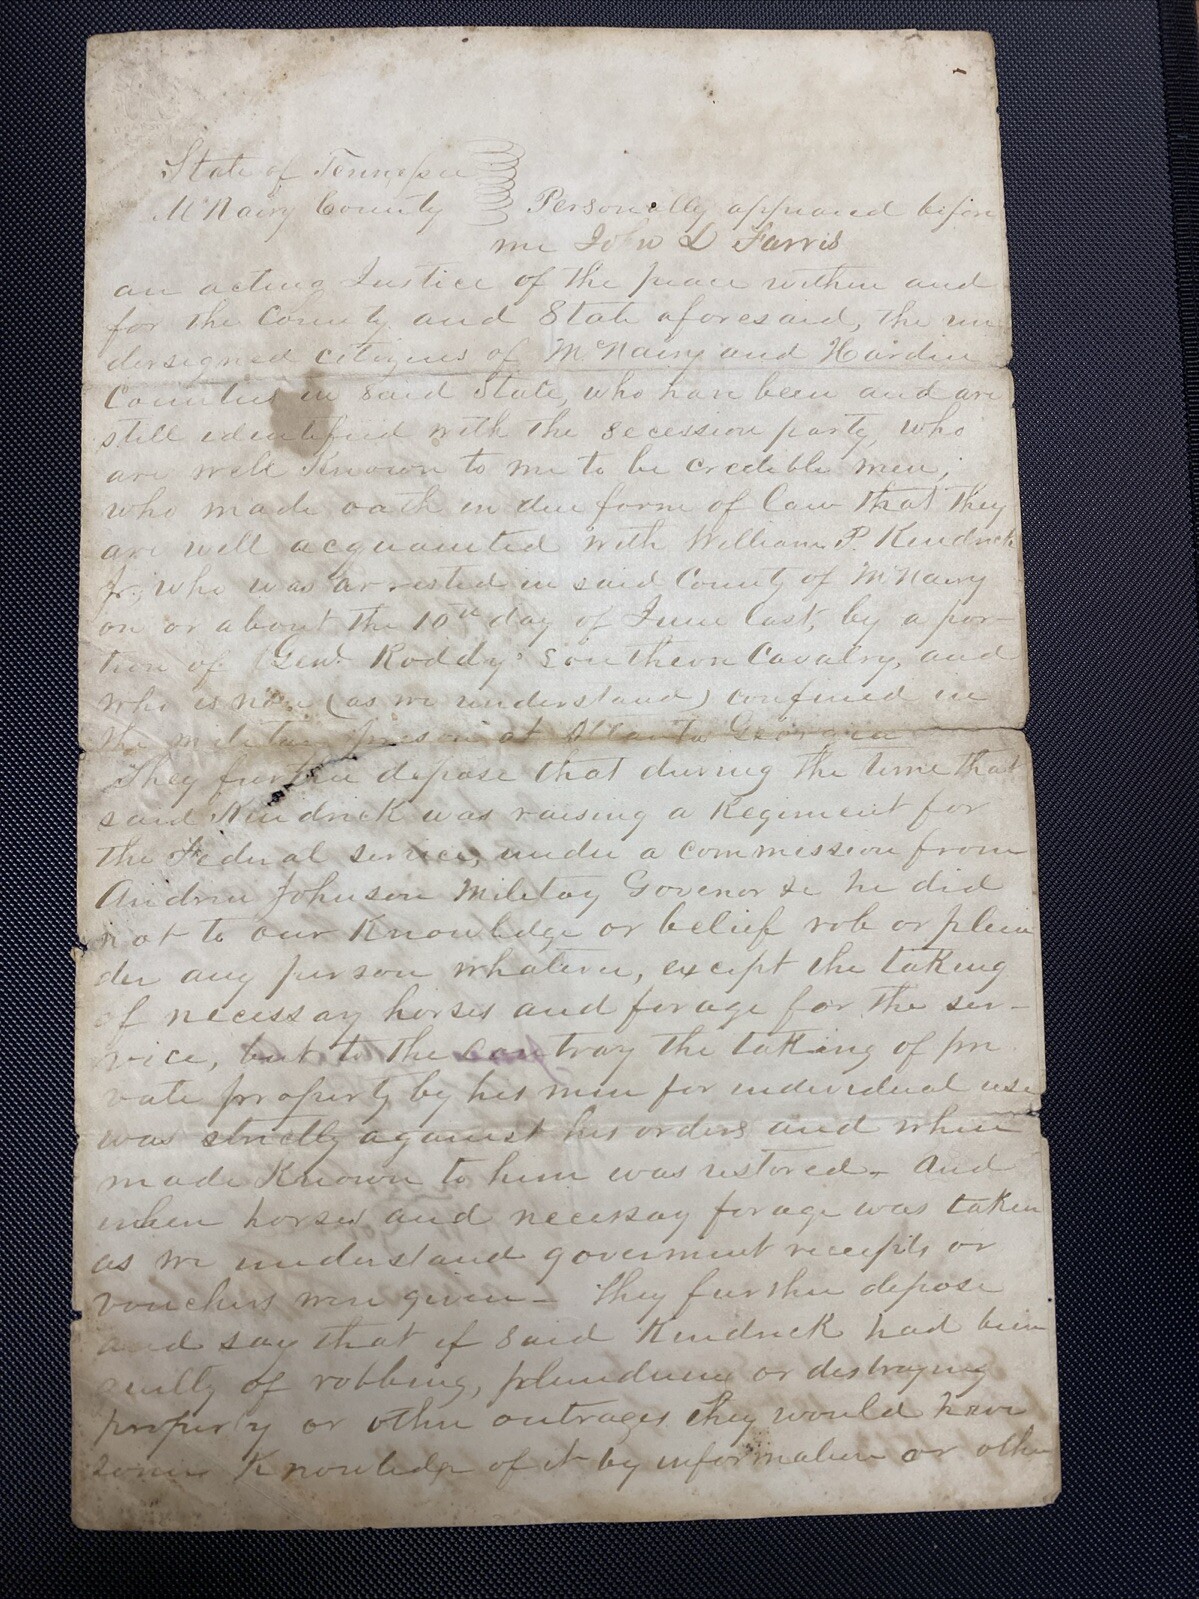 State of Tennessee
McNairy County Personally appeared before
me John L Farris
an acting Justice of the peace within and
for the County and State aforesaid, the un
dersigned citizens of McNairy and Hardin
Counties in said State, who have been and are
still identified with the secession party, who
are well Known to me to be credible men;
who made oath in due form of Law that they
are well acquainted with William P. Kendrick
Jr., who was arrested in said County of McNairy
on or about the 10th day of June last, by a por-
tion of Genl. Roddy's Southern Cavalry, and
who is now (as we understand) confined in
the military prison at Atlanta Georgia
They further depose that during the time that
said Kendrick was raising a Regiment for
the Federal service, under a commission from
Andrew Johnson Militay Govenor &c he did
not to our Knowledge or belief rob or plun
der any person whatever, except the taking
of necessay horses and forage for the ser-
vice, but to the contray the taking of pri
vate property by his men for individual use
was strictly against his orders and when
made Known to him was restored – And
when horses and necessay forage was taken
as we understand goverment receipts or
vouchers were given – They further depose
and say that if said Kendrick had been
guilty of robbing, plundering or destroying
property or other outrages they would have
some Knowledge of it by information or other